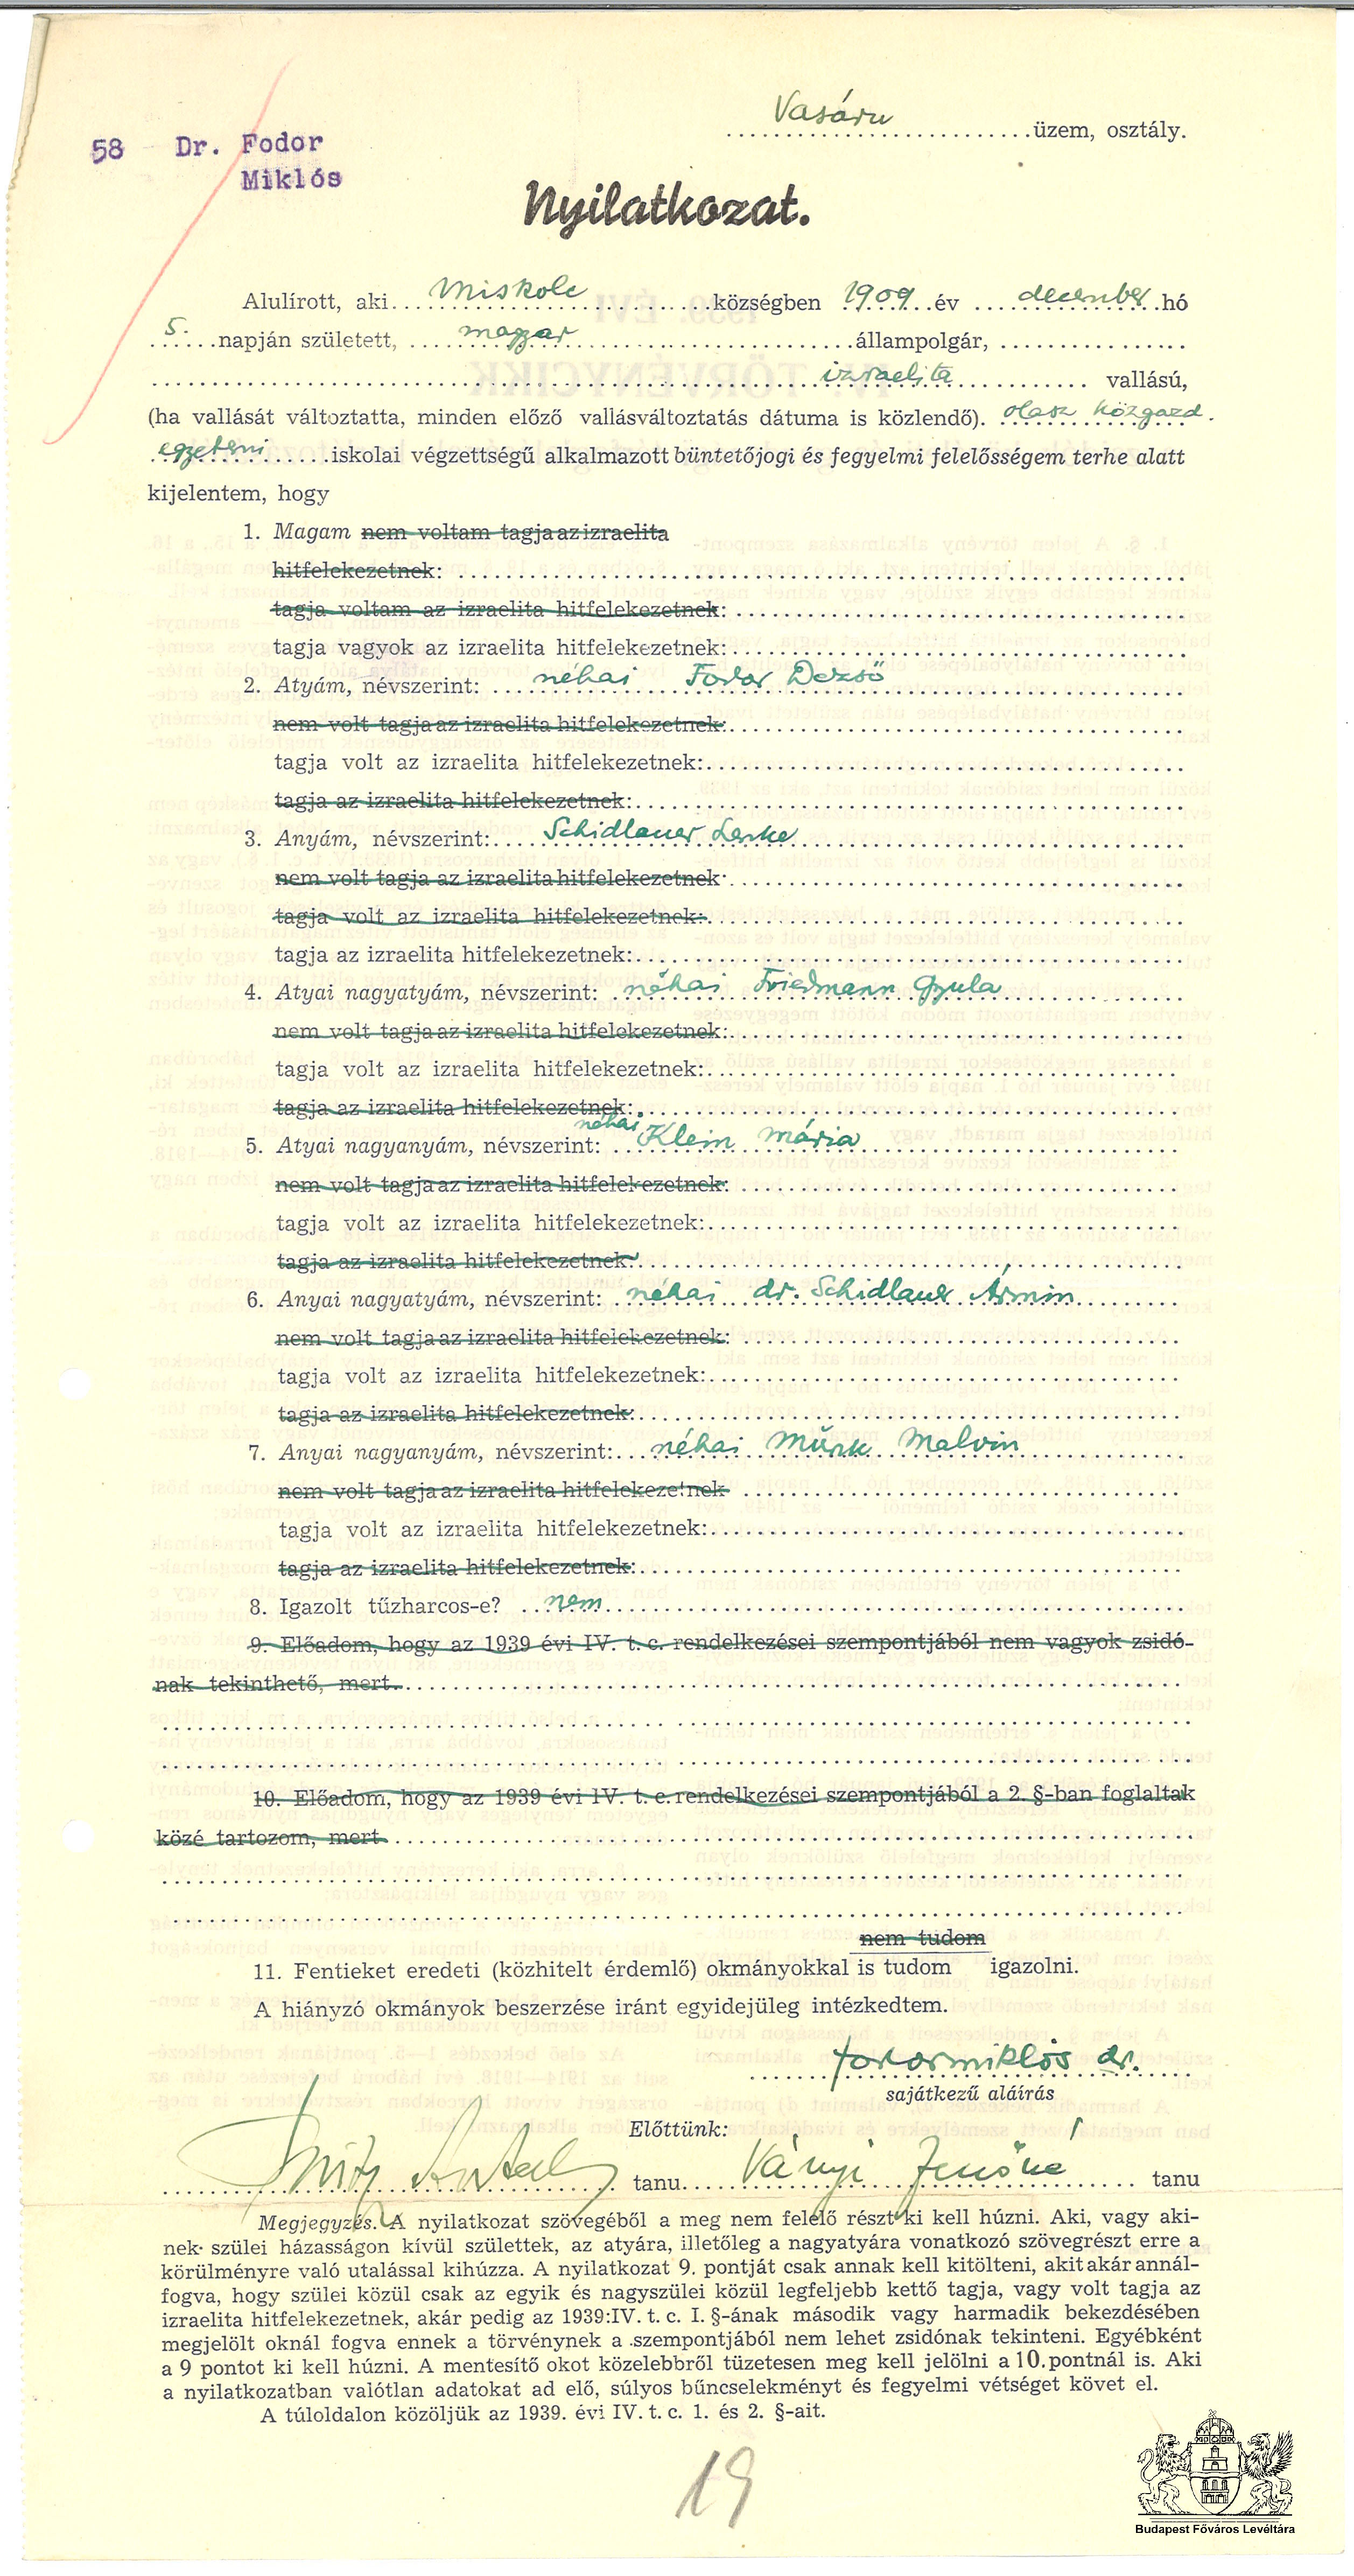 Vasáru
üzem, osztály.
58 Dr. Fodor
Miklós
Nyilatkozat.
Alulírott, aki Miskolc községben 1909 év december hó
5. napján született, magyar állampolgár,
izraelita vallású,
(ha vallását változtatta, minden előző vallásváltoztatás dátuma is közlendő). olasz közgazd.
egyetemi iskolai végzettségű alkalmazott büntetőjogi és fegyelmi felelősségem terhe alatt
kijelentem, hogy
1. Magam nem voltam tagja az izraelita
hitfelekezetnek:
tagja voltam az izraelita hitfelekezetnek:
tagja vagyok az izraelita hitfelekezetnek:
2. Atyám, névszerint: néhai Fodor Dezső
nem volt tagja az izraelita hitfelekezetnek:
tagja volt az izraelita hitfelekezetnek:
tagja az izraelita hitfelekezetnek:
3. Anyám, névszerint: Schidlauer Lenke
nem volt tagja az izraelita hitfelekezetnek
tagja volt az izraelita hitfelekezetnek:
tagja az izraelita hitfelekezetnek:
4. Atyai nagyatyám, névszerint: néhai Friedmann Gyula
nem volt tagja az izraelita hitfelekezetnek:
tagja volt az izraelita hitfelekezetnek:
tagja az izraelita hitfelekezetnek:
5. Atyai nagyanyám, névszerint: néhai Klein Mária
nem volt tagja az izraelita hitfelekezetnek:
tagja volt az izraelita hitfelekezetnek:
tagja az izraelita hitfelekezetnek:
6. Anyai nagyatyám, névszerint: néhai dr. Schidlauer Ármin
nem volt tagja az izraelita hitfelekezetnek:
tagja volt az izraelita hitfelekezetnek:
tagja az izraelita hitfelekezetnek:
7. Anyai nagyanyám, névszerint: néhai Münk Malvin
nem volt tagja az izraelita hitfelekezetnek
tagja volt az izraelita hitfelekezetnek:
tagja az izraelita hitfelekezetnek:
8. Igazolt tűzharcos-e? nem
9. Előadom, hogy az 1939 évi IV. t. c. rendelkezései szempontjából nem vagyok zsidó-
nak tekinthető, mert
10. Előadom, hogy az 1939 évi IV. t. c. rendelkezései szempontjából a 2. §-ban foglaltak
közé tartozom, mert
nem tudom
11. Fentieket eredeti (közhitelt érdemlő) okmányokkal is tudom igazolni.
A hiányzó okmányok beszerzése iránt egyidejüleg intézkedtem.
Fodor Miklós dr.
sajátkezű aláírás
Előttünk:
tanu Ványi Jenőné tanu
Megjegyzés. A nyilatkozat szövegéből a meg nem felelő részt ki kell húzni. Aki, vagy aki-
nek szülei házasságon kívül születtek, az atyára, illetőleg a nagyatyára vonatkozó szövegrészt erre a
körülményre való utalással kihúzza. A nyilatkozat 9. pontját csak annak kell kitölteni, akit akár annál-
fogva, hogy szülei közül csak az egyik és nagyszülei közül legfeljebb kettő tagja, vagy volt tagja az
izraelita hitfelekezetnek, akár pedig az 1939:IV. t. c. I. §-ának második vagy harmadik bekezdésében
megjelölt oknál fogva ennek a törvénynek a szempontjából nem lehet zsidónak tekinteni. Egyébként
a 9 pontot ki kell húzni. A mentesítő okot közelebbről tüzetesen meg kell jelölni a 10. pontnál is. Aki
a nyilatkozatban valótlan adatokat ad elő, súlyos bűncselekményt és fegyelmi vétséget követ el.
A túloldalon közöljük az 1939. évi IV. t. c. 1. és 2. §-ait.
19
Budapest Főváros Levéltára